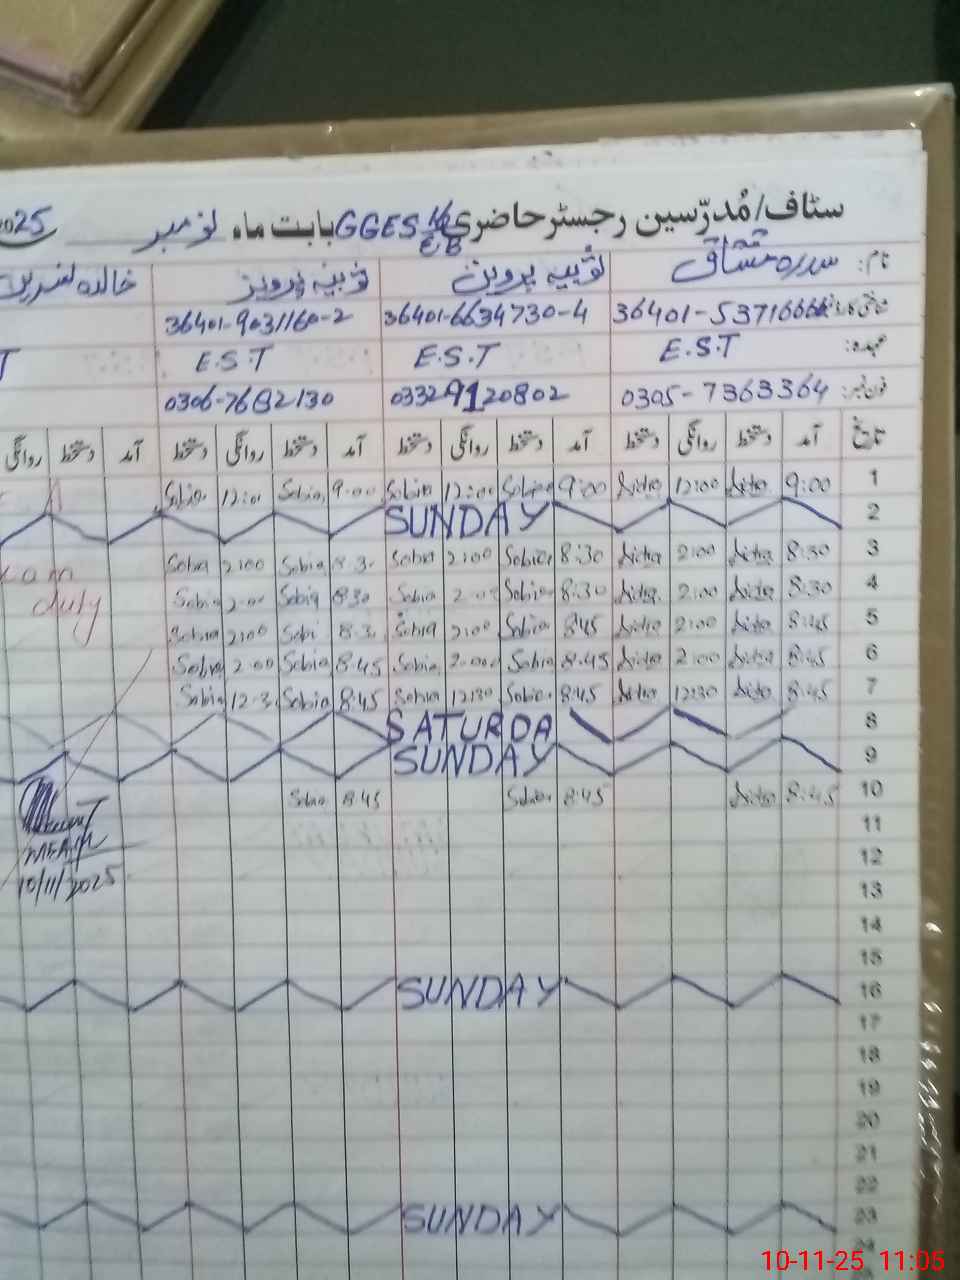 سٹاف/مُدرّسین رجسٹر حاضری GGES بابت ماہ نومبر 2025
EB
نام: سدرہ مشتاق ثوبیہ پروین ثوبیہ پرویز خالدہ نسرین
36401-6634730-4 36401-9031160-2
عہدہ: E.S.T E.S.T E.S.T T
0305-7363364 03329120802 0306-7682130
تاریخ آمد دستخط روانگی دستخط آمد دستخط روانگی دستخط آمد دستخط روانگی دستخط آمد دستخط روانگی
1 9:00 Sidra 12:00 Sidra 9:00 Sobia 12:00 Sobia 9:00 Sobia 12:00 Sobia
2 SUNDAY
3 8:30 Sidra 2:00 Sidra 8:30 Sobia 2:00 Sobia 8:30 Sobia 2:00 Sobia
4 8:30 Sidra 2:00 Sidra 8:30 Sobia 2:00 Sobia 8:30 Sobia 2:00 Sobia
duty
5 8:45 Sidra 2:00 Sidra 8:45 Sobia 2:00 Sobia 8:3 Sobi 2:00 Sobia
6 8:45 Sidra 2:00 Sidra 8:45 Sobia 2:00 Sobia 8:45 Sobia 2:00 Sobia
7 8:45 Sidra 12:30 Sidra 8:45 Sobia 12:30 Sobia 8:45 Sobia 12:3 Sobia
8 SATURDA
9 SUNDAY
10 8:45 Sidra 8:45 Sobia 8:45 Sobia
11
12
10/11/2025
13
14
15
16 SUNDAY
17
18
19
20
21
22
23 SUNDAY
24
10-11-25 11:05